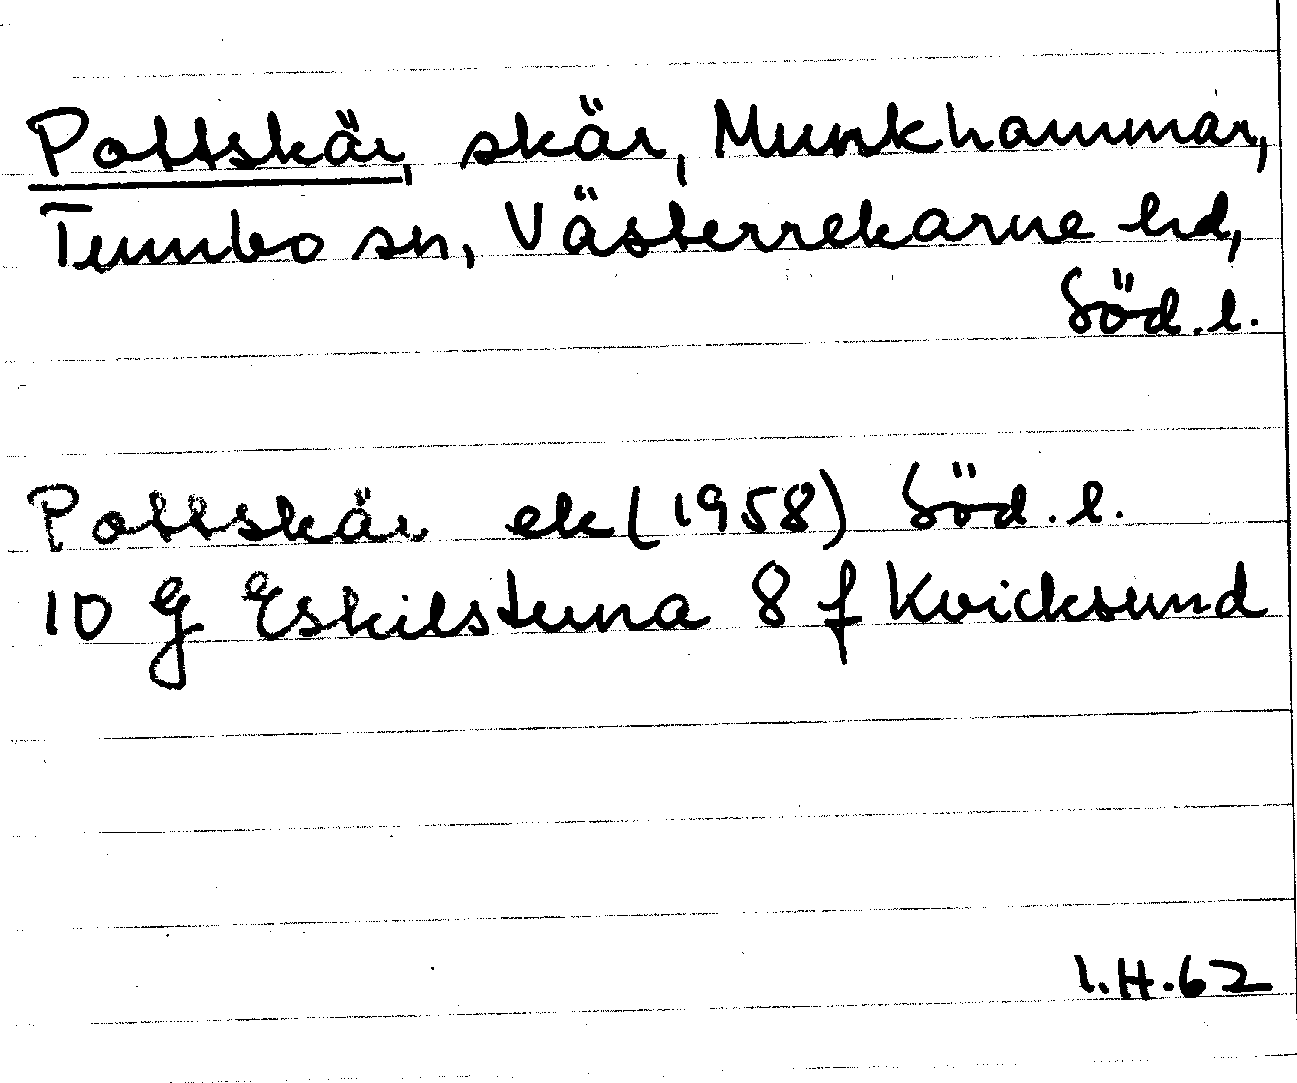 Pottskär, skär, Munkhammar,
Tumbo sn, Västerrekarne hd,
Söd. l.
Pottskär ek (1958) Söd. l.
10 g Eskilstuna 8 f Kvicksund
I.H.62